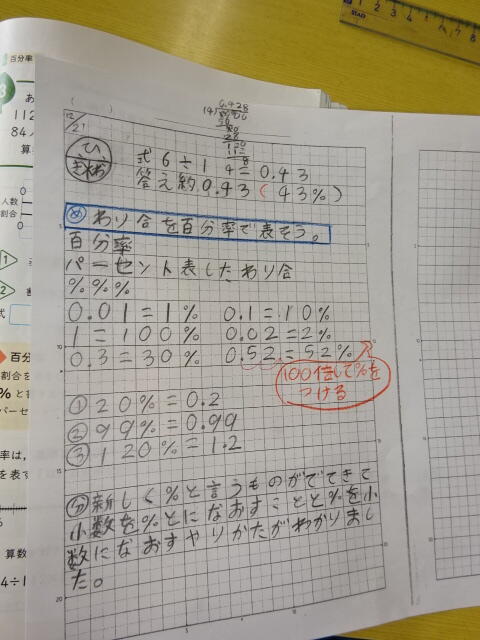 百分率
12/21
0.428
てい
きゅう
式 6÷14=0.43
答え約0.43(43%)
め わり合を百分率で表そう。
百分率
パーセント表したわり合
%%%
0.01=1% 0.1=10%
1=100% 0.02=2%
0.3=30% 0.52=52%
100倍して%を
つける
① 20%=0.2
② 99%=0.99
③ 120%=1.2
新しく%と言うものがでてきて
小数を%とになおすことと%を小
数になおすやりかたがわかりまし
た。
人数
割合
式
百分
割合を
パーセ
率は、
を表す
算数
4÷1